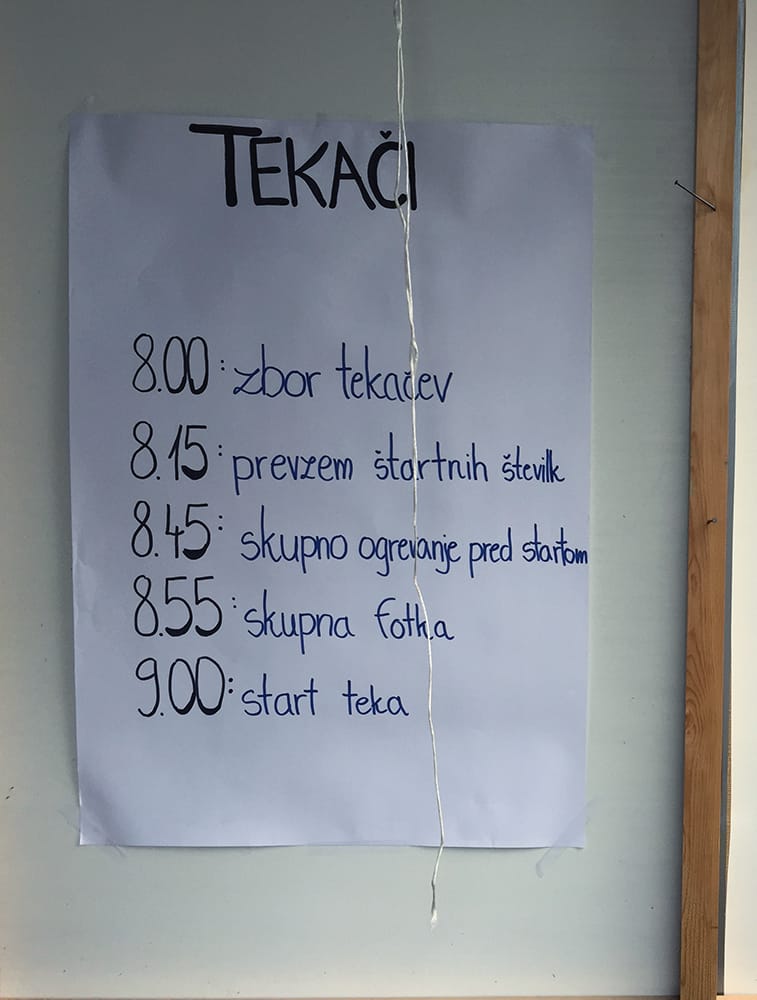 TEKAČI
8.00: zbor tekačev
8.15: prevzem štartnih številk
8.45: skupno ogrevanje pred startom
8.55: skupna fotka
9.00: start teka